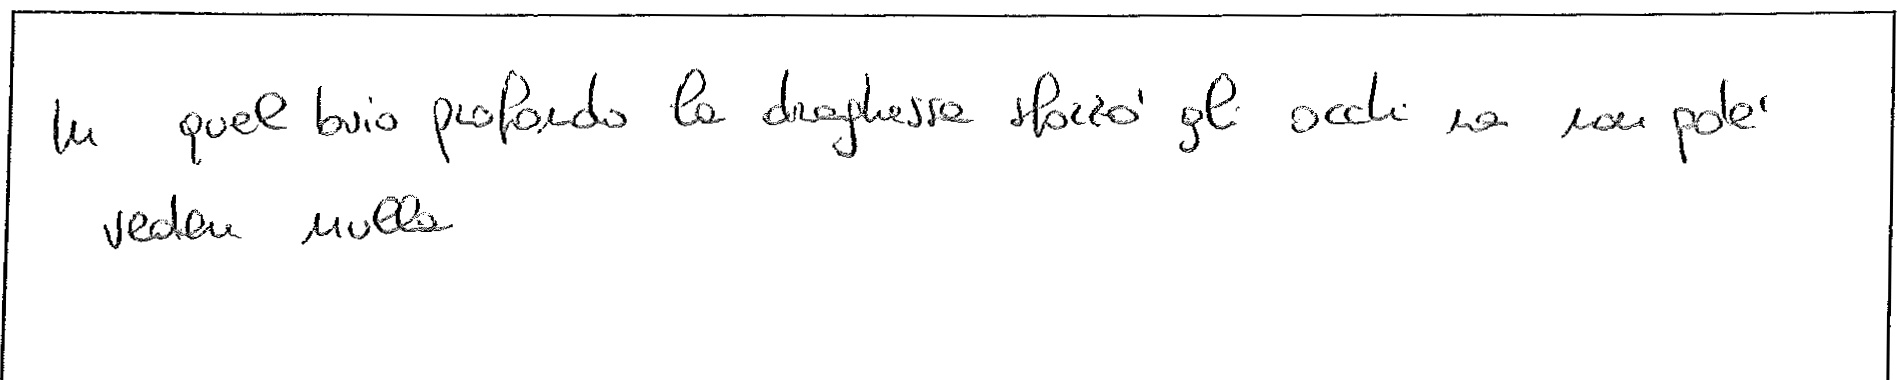 In quel buio profondo la draghessa sforzò gli occhi ma non poté
veder nulla